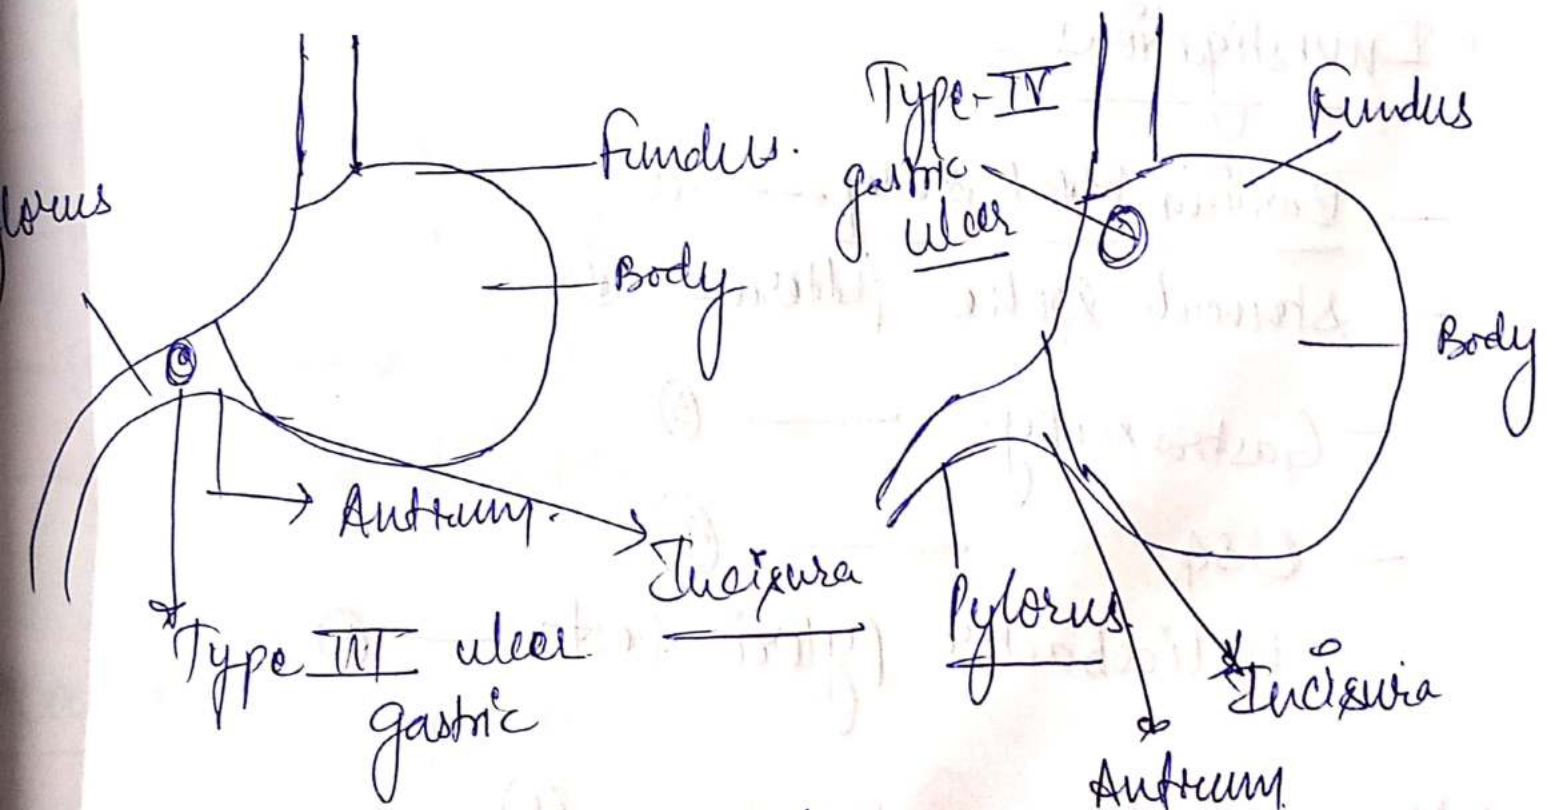 Fundus.
lorus
Body
Antrum.
Incisura
Type III ulcer
gastric
Type-IV
gastric
ulcer
Fundus
Body
Pylorus
Incisura
Antrum